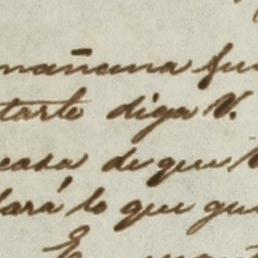 mañana fu
tarle diga V.
casa de que V
dará lo que gu